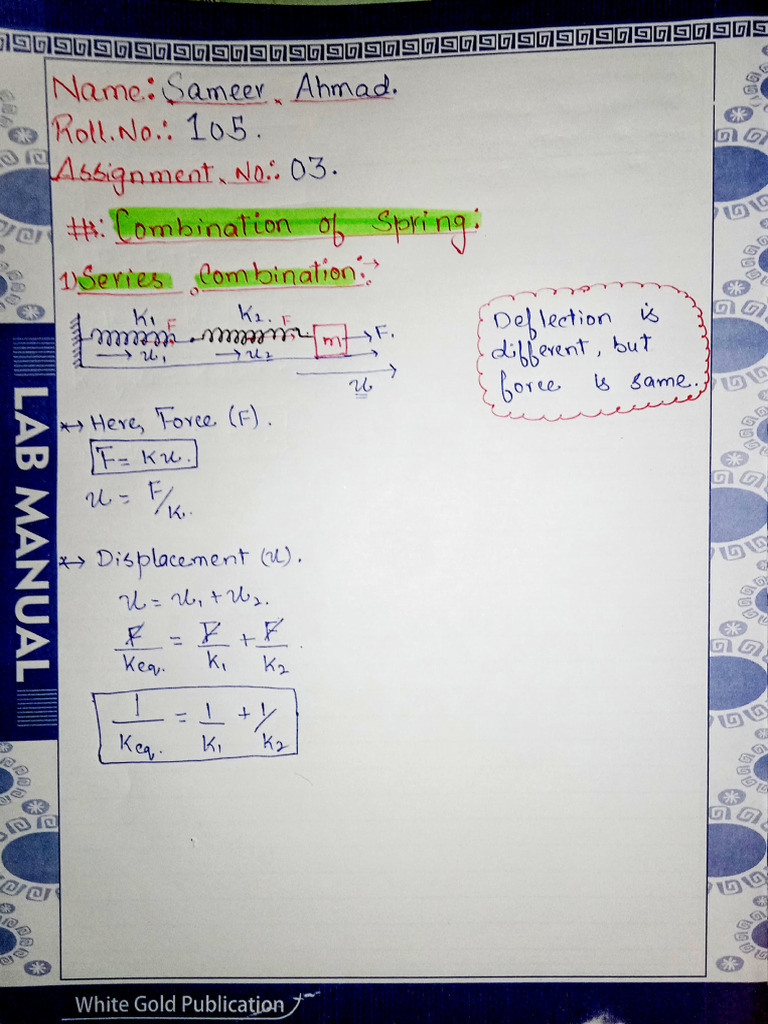 Name: Sameer Ahmad.
Roll.No.: 105.
Assignment. No.: 03.
#: Combination of Spring:
1) Series Combination:→
K1 F K2. F m → F.
→ u1 → u2
u
Deflection is
different, but
force is same.
*→ Here, Force (F).
F = Ku.
u = F/K.
*→ Displacement (u).
u = u1 + u2.
F/Keq. = F/K1 + F/K2.
1/Keq. = 1/K1 + 1/K2
LAB MANUAL
White Gold Publication